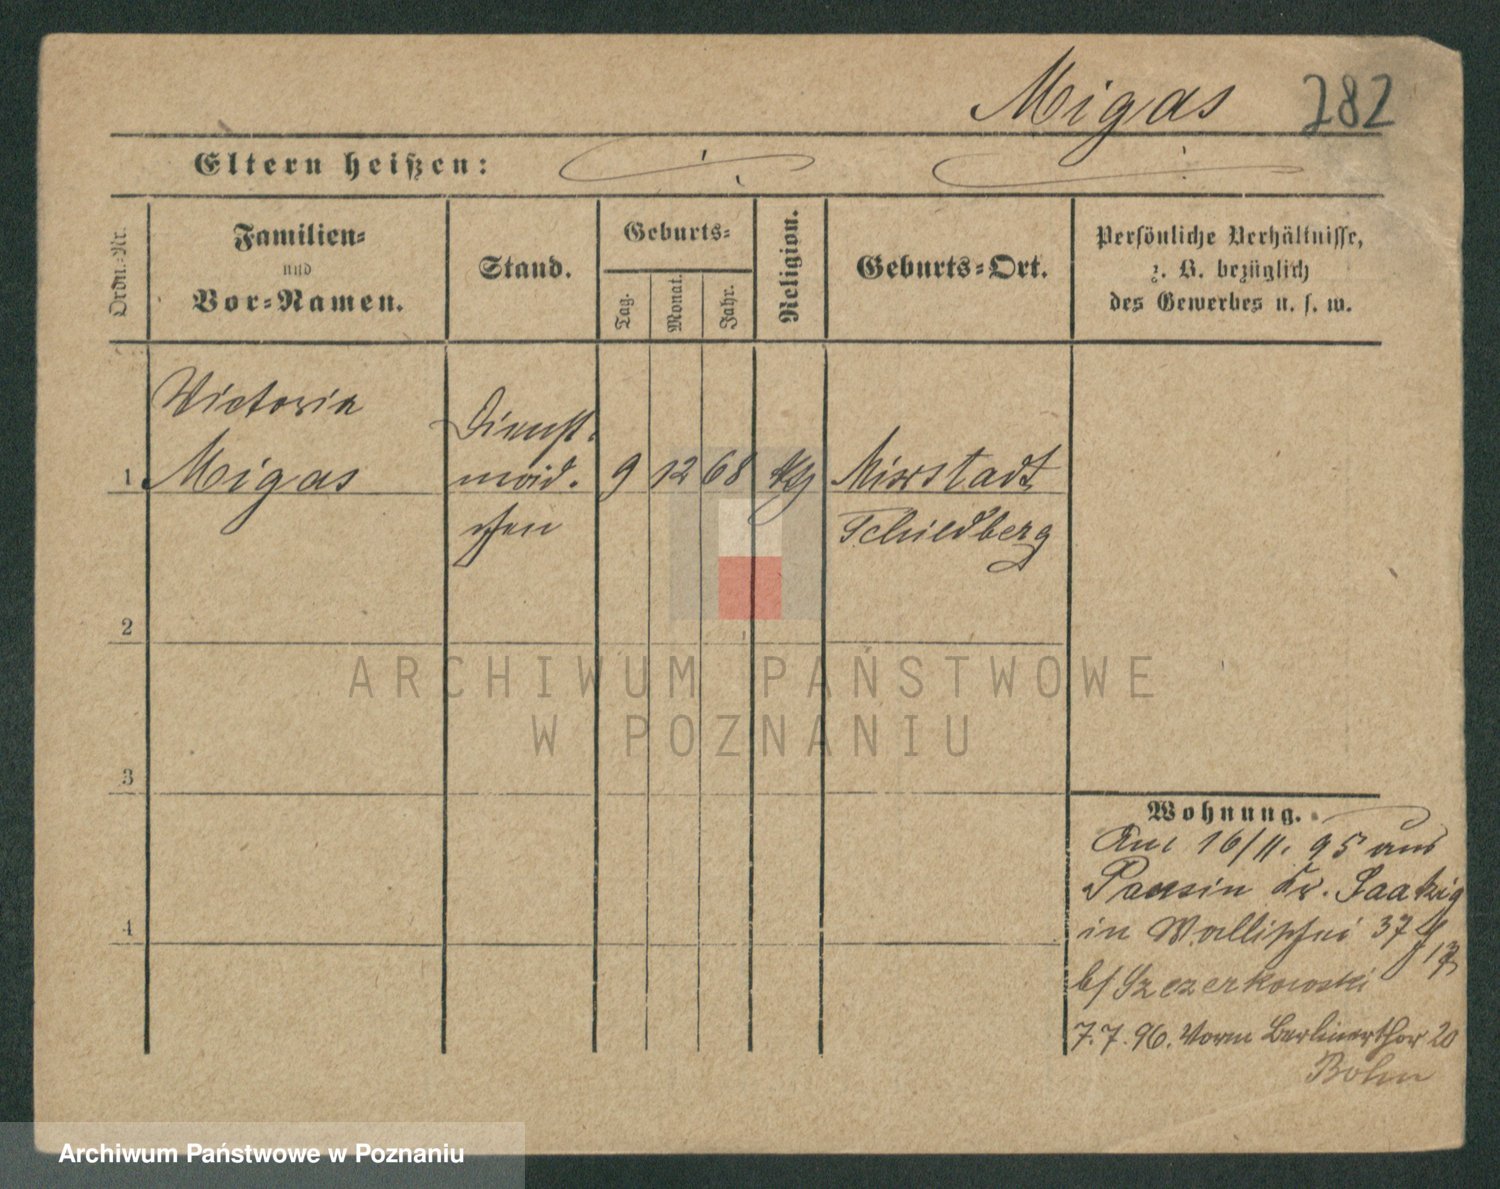 Migas 282
Eltern heißen:
Ordn.-Nr.
Familien-
und
Vor-Namen.
Stand.
Geburts-
Tag.
Monat.
Jahr.
Religion.
Geburts-Ort.
Persönliche Verhältnisse,
z. B. bezüglich
des Gewerbes u. s. w.
Victoria
Migas
Dienst-
mäd-
chen
1
9 12 68
Mixstadt
Schildberg
2
3
4
ARCHIWUM PAŃSTWOWE
W POZNANIU
Wohnung.
Am 16/11. 95 aus
Pansin Kr. Saatzig
in Wallischei 37
b/ Szczerkowski
7.7.96. Vorm Berlinerthor 20
Bohn
Archiwum Państwowe w Poznaniu